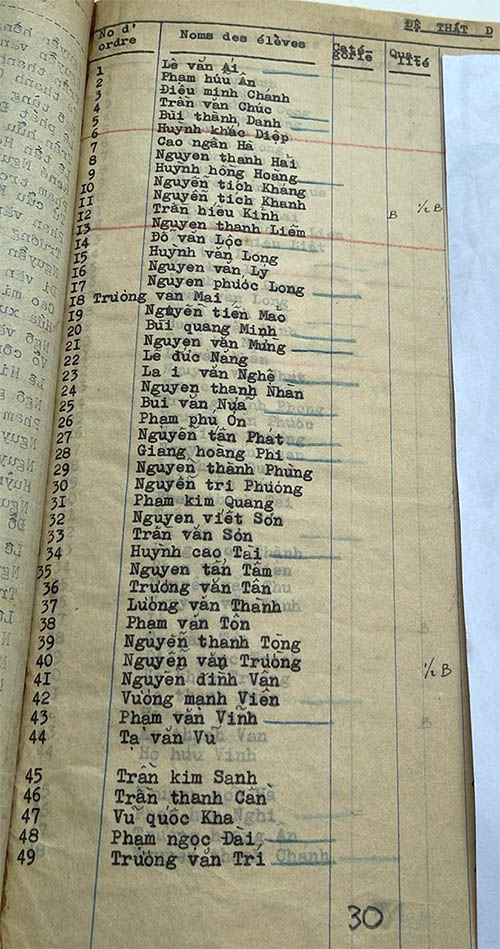 ĐỆ THẤT D
No d'ordre Noms des élèves Catégorie Qualité
1 Lê văn Ái
2 Phạm hữu Ân
3 Điêu minh Chánh
4 Trần văn Chúc
5 Bùi thành Danh
6 Huỳnh khắc Diệp
7 Cao ngân Hà
8 Nguyen thanh Hải
9 Huỳnh hồng Hoang
10 Nguyễn tích Kháng
11 Nguyễn tích Khanh
12 Trần hiếu Kinh B ½ B
13 Nguyen thanh Liêm
14 Đỗ văn Lộc
15 Huỳnh văn Long
16 Nguyen văn Lý
17 Nguyen phước Long
18 Trương van Mai
19 Nguyễn tiến Mao
20 Bùi quang Minh
21 Nguyễn văn Mừng
22 Lê đức Năng
23 La i văn Nghệ
24 Nguyen thanh Nhàn
25 Bùi văn Nựa
26 Phạm phú Ơn
27 Nguyễn tấn Phát
28 Giang hoàng Phi
29 Nguyễn thành Phùng
30 Nguyễn tri Phương
31 Phạm kim Quang
32 Nguyen viết Sơn
33 Trần văn Sơn
34 Huỳnh cao Tai
35 Nguyen tấn Tâm
36 Trương văn Tân
37 Lương văn Thành
38 Phạm văn Tôn
39 Nguyễn thanh Tòng
40 Nguyễn văn Trương ½ B
41 Nguyễn đình Vân
42 Vương mạnh Viên
43 Phạm văn Vinh
44 Tạ văn Vũ
45 Trần kim Sanh
46 Trần thanh Cần
47 Vũ quốc Kha
48 Phạm ngọc Đài
49 Trương văn Trí
30